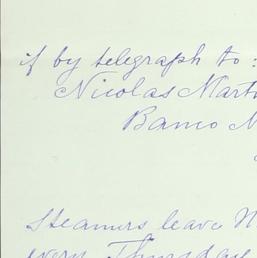 if by telegraph to:
Nicolas Mart
Banco
Steamers leave
every Thursday